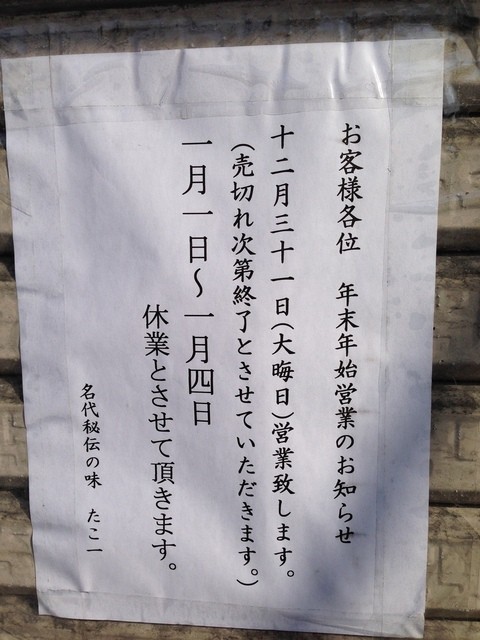 お客様各位　年末年始営業のお知らせ
十二月三十一日(大晦日)営業致します。
(売切れ次第終了とさせていただきます。)
一月一日〜一月四日
休業とさせて頂きます。
名代秘伝の味　たこ一